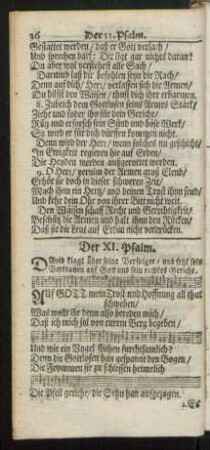 36 Der 11. Psalm.
Gestattet werden / daß er Gott verlach /
Und sprechen dabey: Die ligt gar nichts daran?
Du aber wol verstehest alle Sach /
Darumb laß dir befohlen seyn die Rach /
Denn auf dich / Herr, verlassen sich die Armen /
Du hilfst den Waisen / thust dich ihr erbarmen.
8. Zubrich dem Gottlosen seines Armes Stärk /
Ziehe und foder ihn für dein Gericht /
Rüg und erforsch sein Sünd und böse Werk /
So wird er für dich dürffen kommen nicht.
Denn wird der Herr / wenn solches nu geschicht /
In Ewigkeit regieren hie auf Erden /
Die Heyden werden außgerottet werden.
9. O Herr / vernim der Armen groß Elend /
Erhör sie doch in dieser schweren Zeit /
Mach ihm ein Hertz und deinen Trost ihm send /
Und kehr dein Ohr von ihrer Bitt nicht weit.
Den Waisen schaff Recht und Gerechtigkeit /
Beschütz die Armen und halt ihm den Rücken /
Daß sie die Leut auf Erden nicht verdrücken.
Der XI. Psalm.
David klagt über seine Verfolger / und setzt sein
Vertrauen auf Gott und sein rechtes Gericht.
Auf GOTT mein Trost und Hoffnung all thut
schweben /
Was wollt ihr denn also bereden mich /
Daß ich mich sol von eurem Berg begeben /
Und wie ein Vogel fliehen furchtsamlich?
Denn die Gottlosen han gespannt den Bogen /
Die Frommen sie zu schiessen heimelich
Die Pfeil gericht / die Sehn han aufgezogen.
2. Es